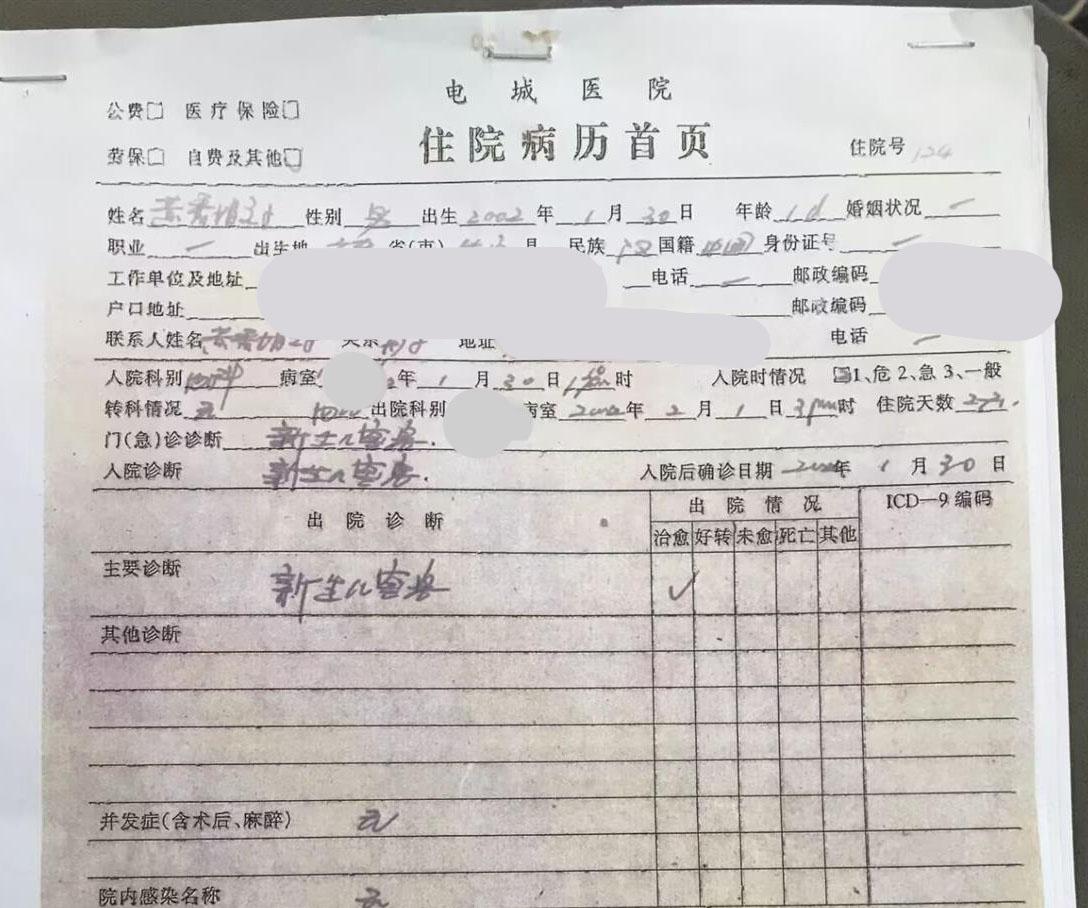 电城医院
公费□ 医疗保险□
住院病历首页
劳保□ 自费及其他□ 住院号 124
姓名 性别 男 出生 2002 年 1 月 30 日 年龄 1d 婚姻状况 一
职业 一 出生地 省(市) 县 民族 汉 国籍 中国 身份证号 一
工作单位及地址 电话 一 邮政编码
户口地址 邮政编码
联系人姓名 关系 地址 电话 一
入院科别 病室 年 1 月 30 日 时 入院时情况 1、危 2、急 3、一般
转科情况 无 出院科别 病室 2002 年 2 月 1 日 3pm 时 住院天数 2天
门(急)诊诊断 新生儿窒息.
入院诊断 新生儿窒息. 入院后确诊日期 2002 年 1 月 30 日
出院诊断 出院情况 ICD—9编码
治愈 好转 未愈 死亡 其他
主要诊断 新生儿窒息 ✓
其他诊断
并发症(含术后、麻醉) 无
院内感染名称 无